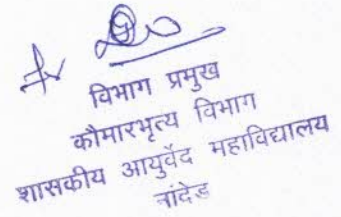 विभाग प्रमुख
कौमारभृत्य विभाग
शासकीय आयुर्वेद महाविद्यालय
नांदेड